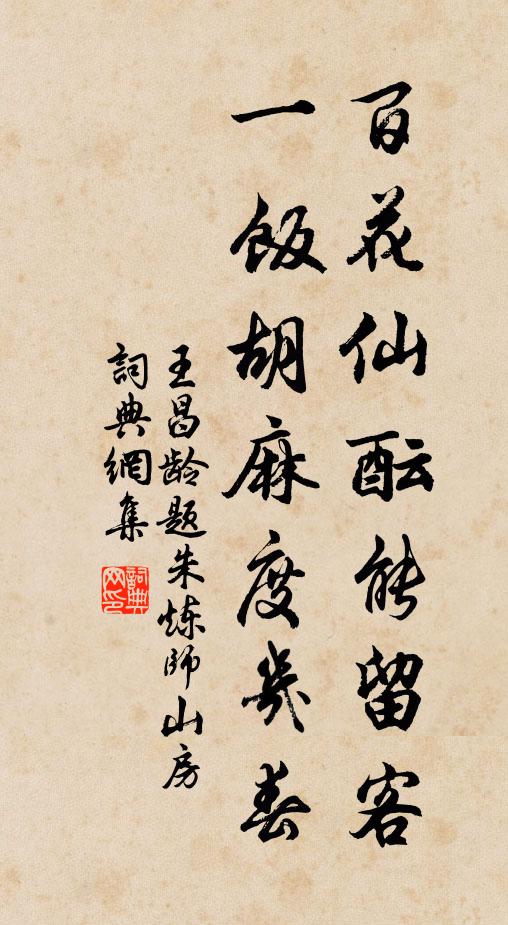 百花仙酝能留客
一饭胡麻度几春
王昌龄题朱炼師山房
詞典網集
詞典网印